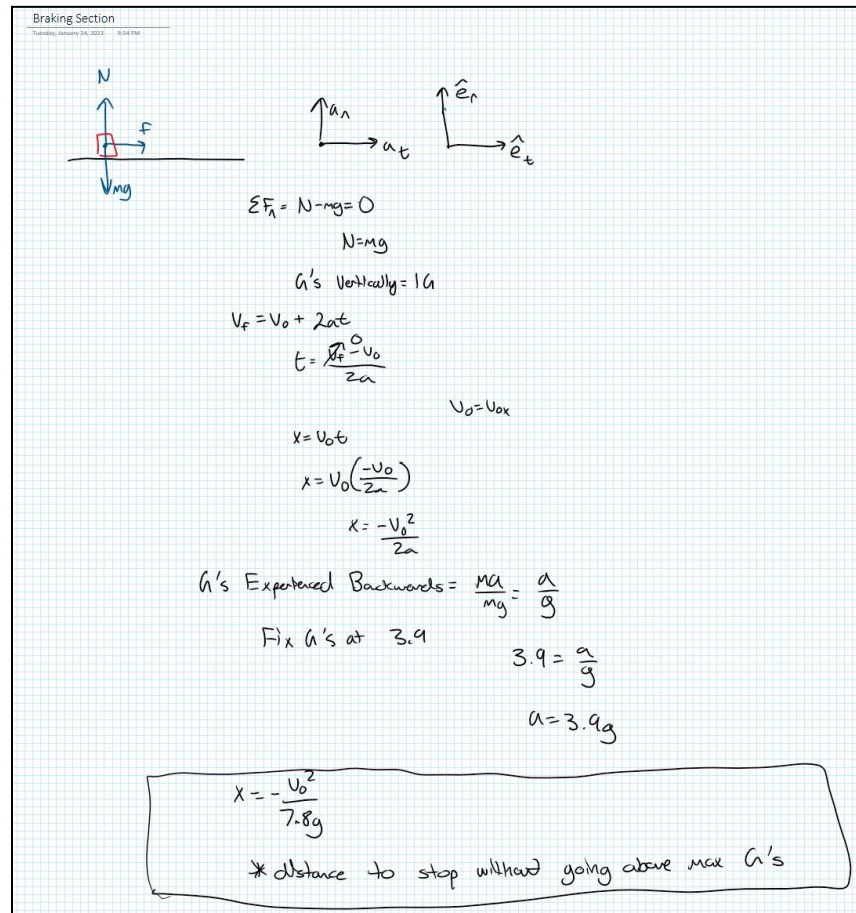 Braking Section
Tuesday, January 24, 2023 9:54 PM
N
f
mg
aₙ
aₜ
êₙ
êₜ
ΣFₙ = N-mg = 0
N=mg
G's Vertically = 1G
V_f = V₀ + 2at
t = (V_f⁰ - V₀)/2a
V₀ = V₀ₓ
x = V₀t
x = V₀(-V₀/2a)
x = -V₀²/2a
G's Experienced Backwards = ma/mg = a/g
Fix G's at 3.9
3.9 = a/g
a = 3.9g
x = - V₀²/7.8g
* distance to stop without going above max G's